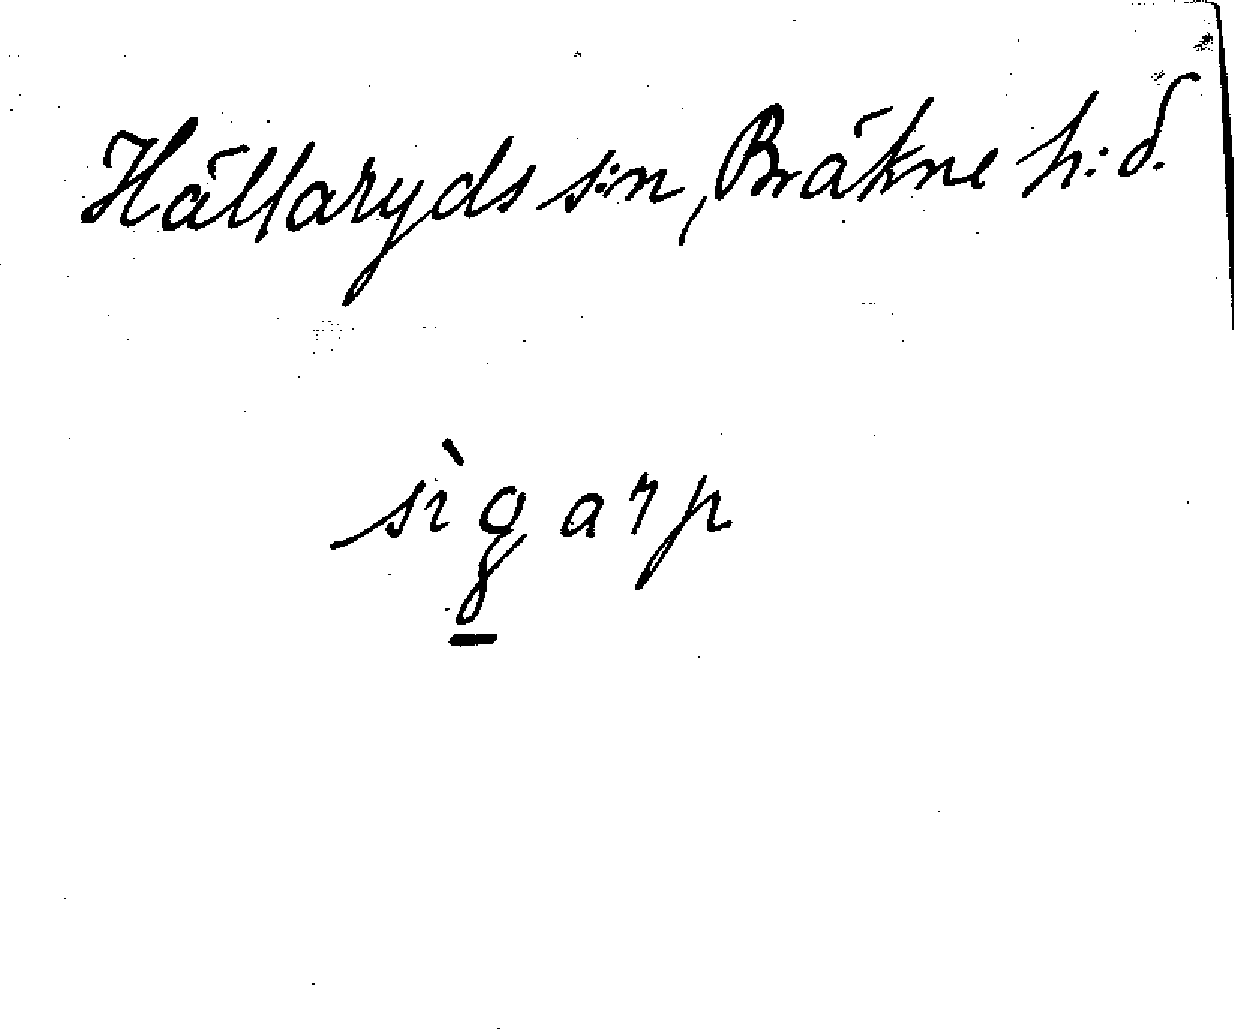 Hällaryds s:n, Bräkne h:d.
sìgarp